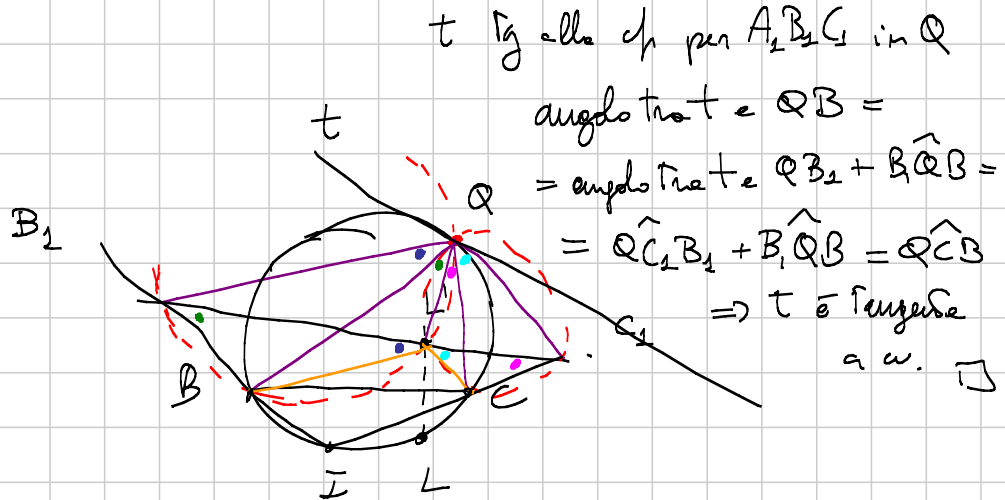 t Tg alla cfr per A₁B₁C₁ in Q
angolo tra t e QB =
= angolo tra t e QB₁ + B₁Q̂B =
= QĈ₁B₁ + B₁Q̂B = QĈB
⇒ t è tangente
a ω. □
t
Q
B₁
L'
C₁
B
C
I
L